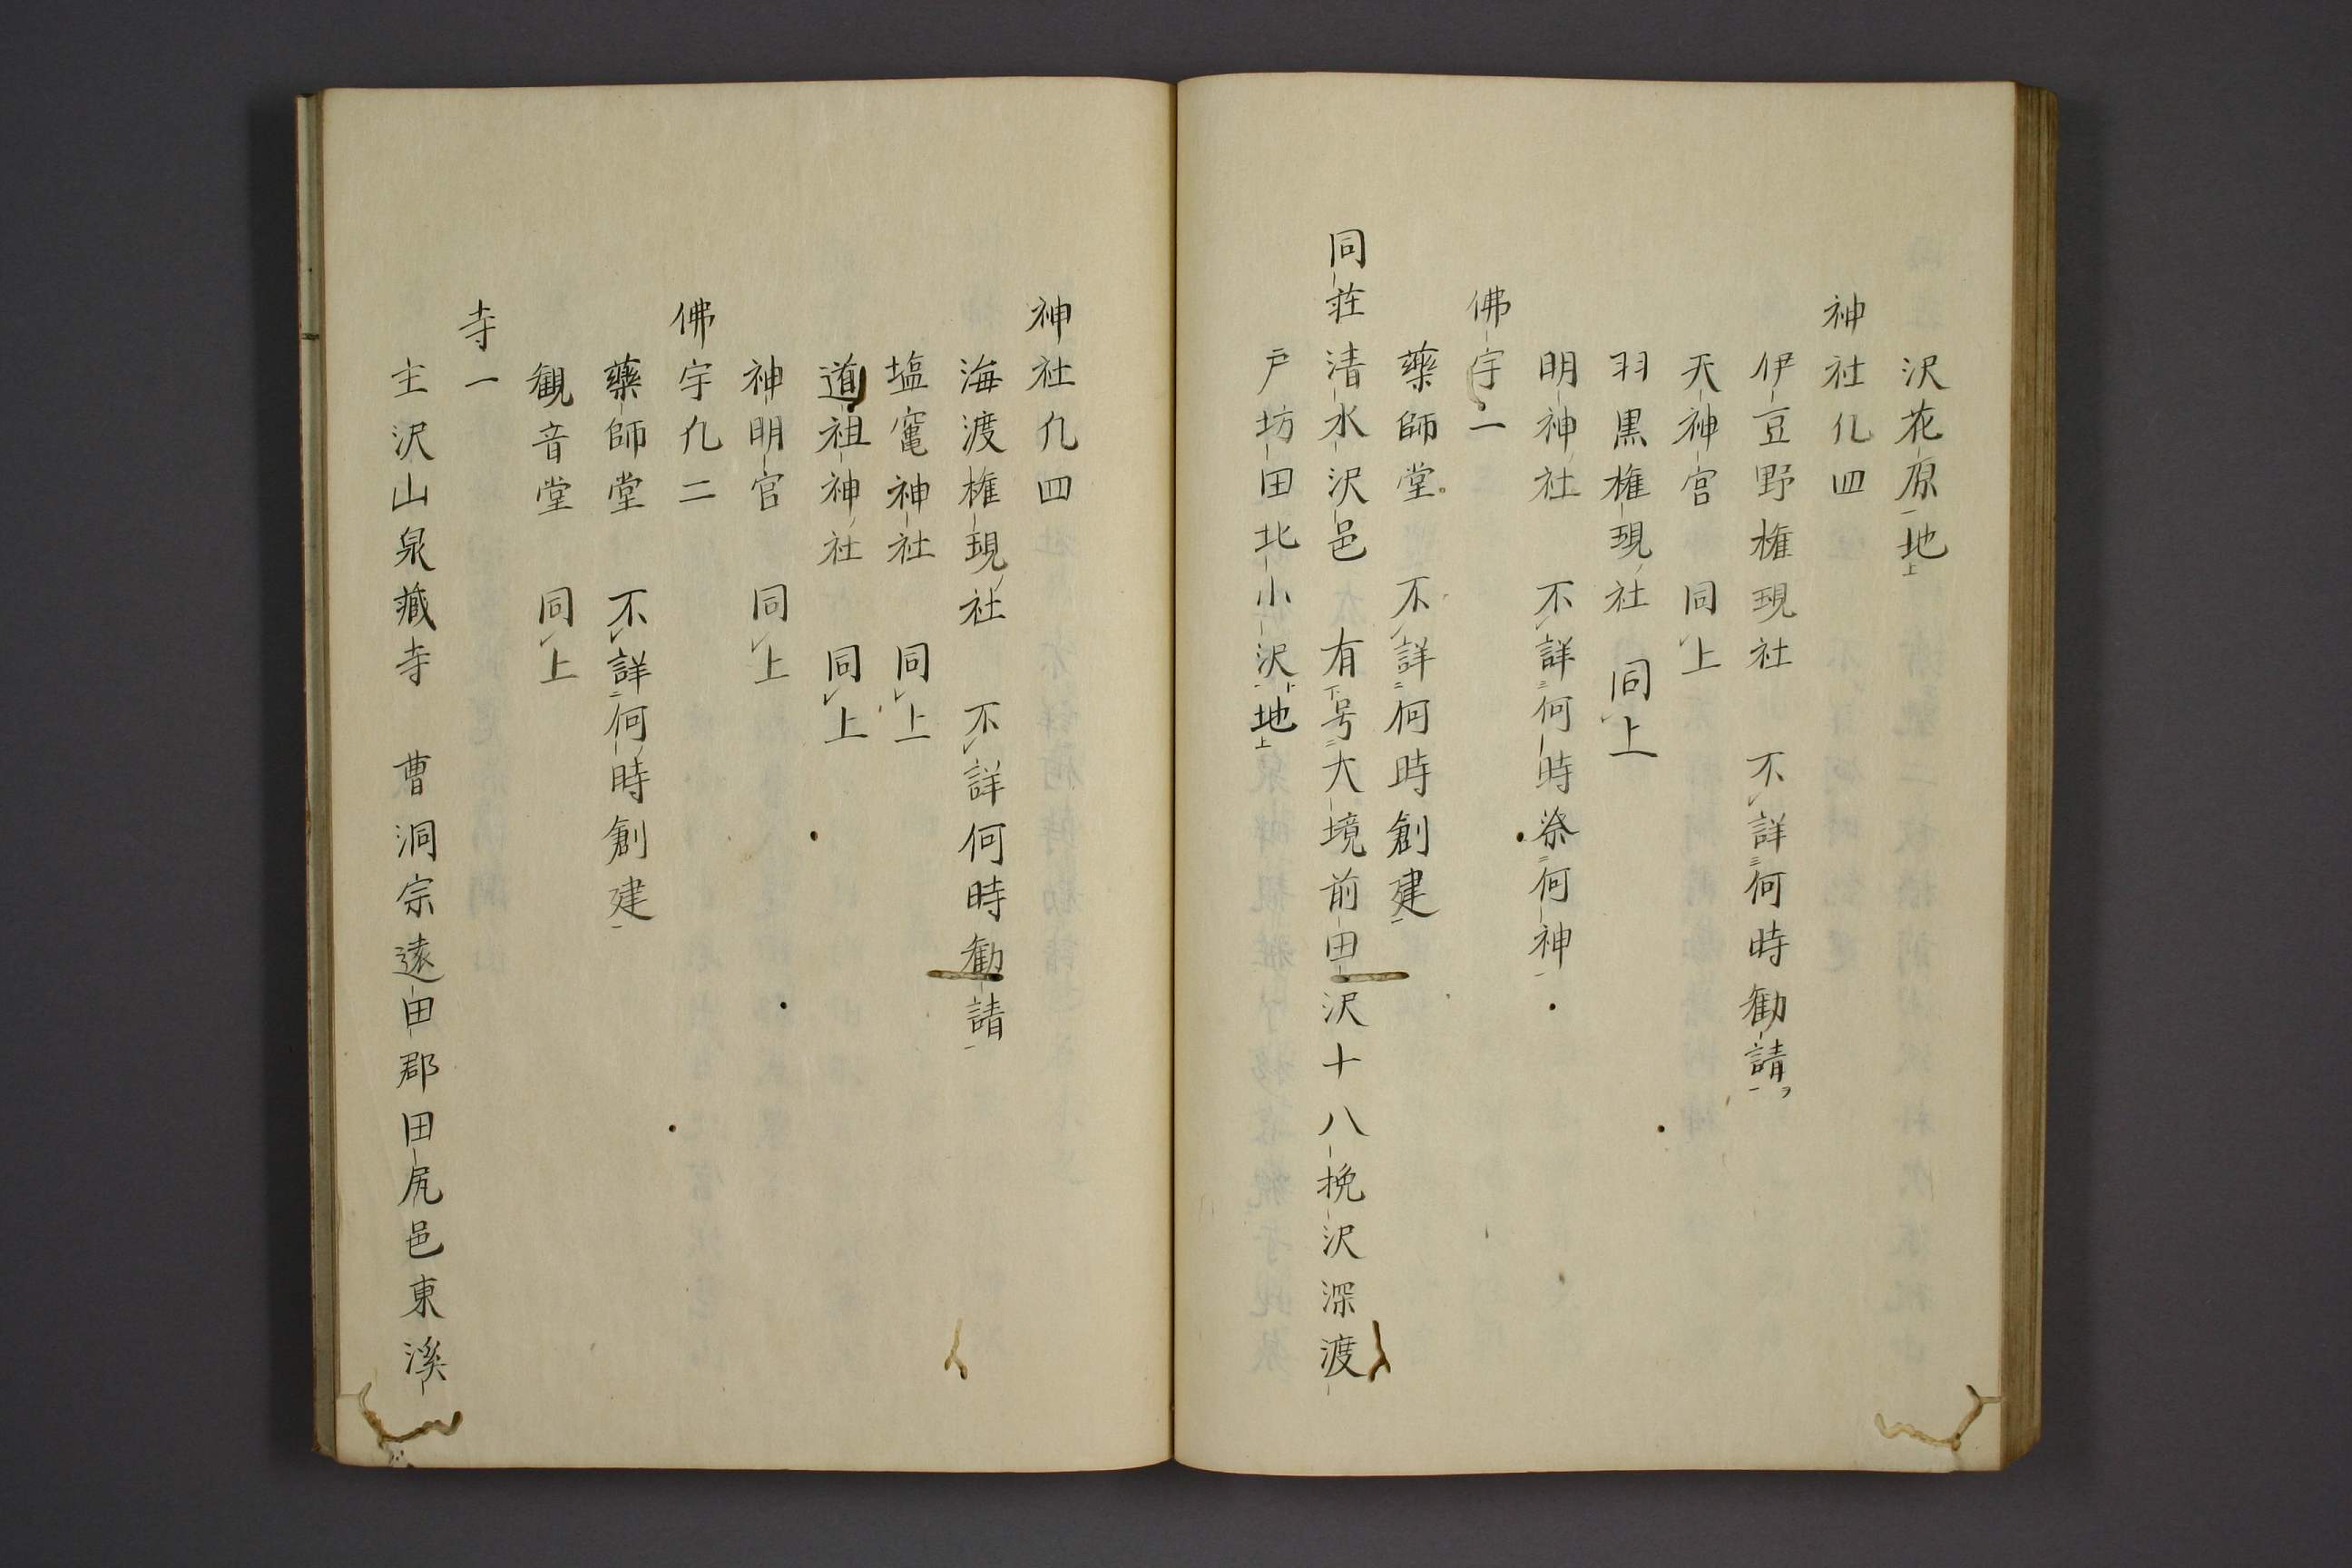 沢花原地
神社凡四
伊豆野権現社 不詳何時勧請
天神宮 同上
羽黒権現社 同上
明神社 不詳何時祭何神
佛宇一
藥師堂 不詳何時創建
同荘清水沢邑 有号大境前田沢十八挽沢深渡
戸坊田北小沢地
神社凡四
海渡権現社 不詳何時勧請
塩竈神社 同上
道祖神社 同上
神明宮 同上
佛宇凡二
藥師堂 不詳何時創建
観音堂 同上
寺一
主沢山泉蔵寺 曹洞宗遠田郡田尻邑東溪